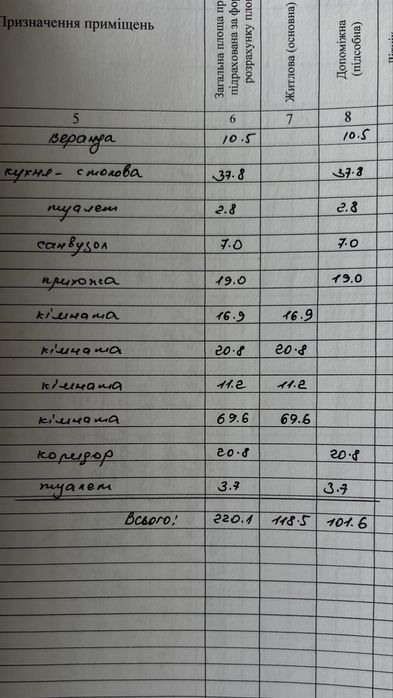 Призначення приміщень
Загальна площа
підрахована за
розрахунку
Житлова (основна)
Допоміжна
(підсобна)
5 6 7 8
Веранда 10.5 10.5
кухня-столова 37.8 37.8
туалет 2.8 2.8
санвузол 7.0 7.0
прихожа 19.0 19.0
кімната 16.9 16.9
кімната 20.8 20.8
кімната 11.2 11.2
кімната 69.6 69.6
коридор 20.8 20.8
туалет 3.7 3.7
Всього: 220.1 118.5 101.6